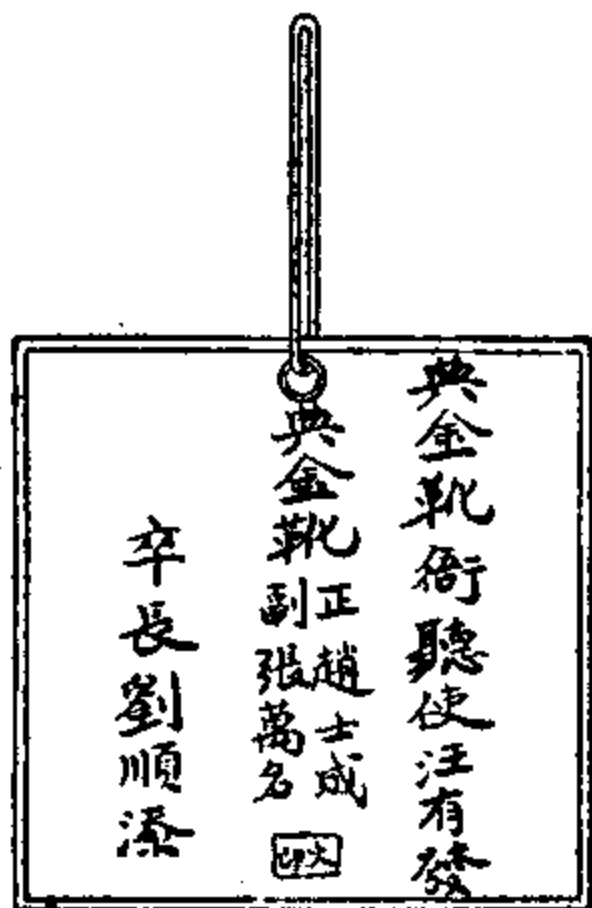 典金靴衙聽使汪有發
典金靴正趙士成
副張萬名
火印
卒長劉順添